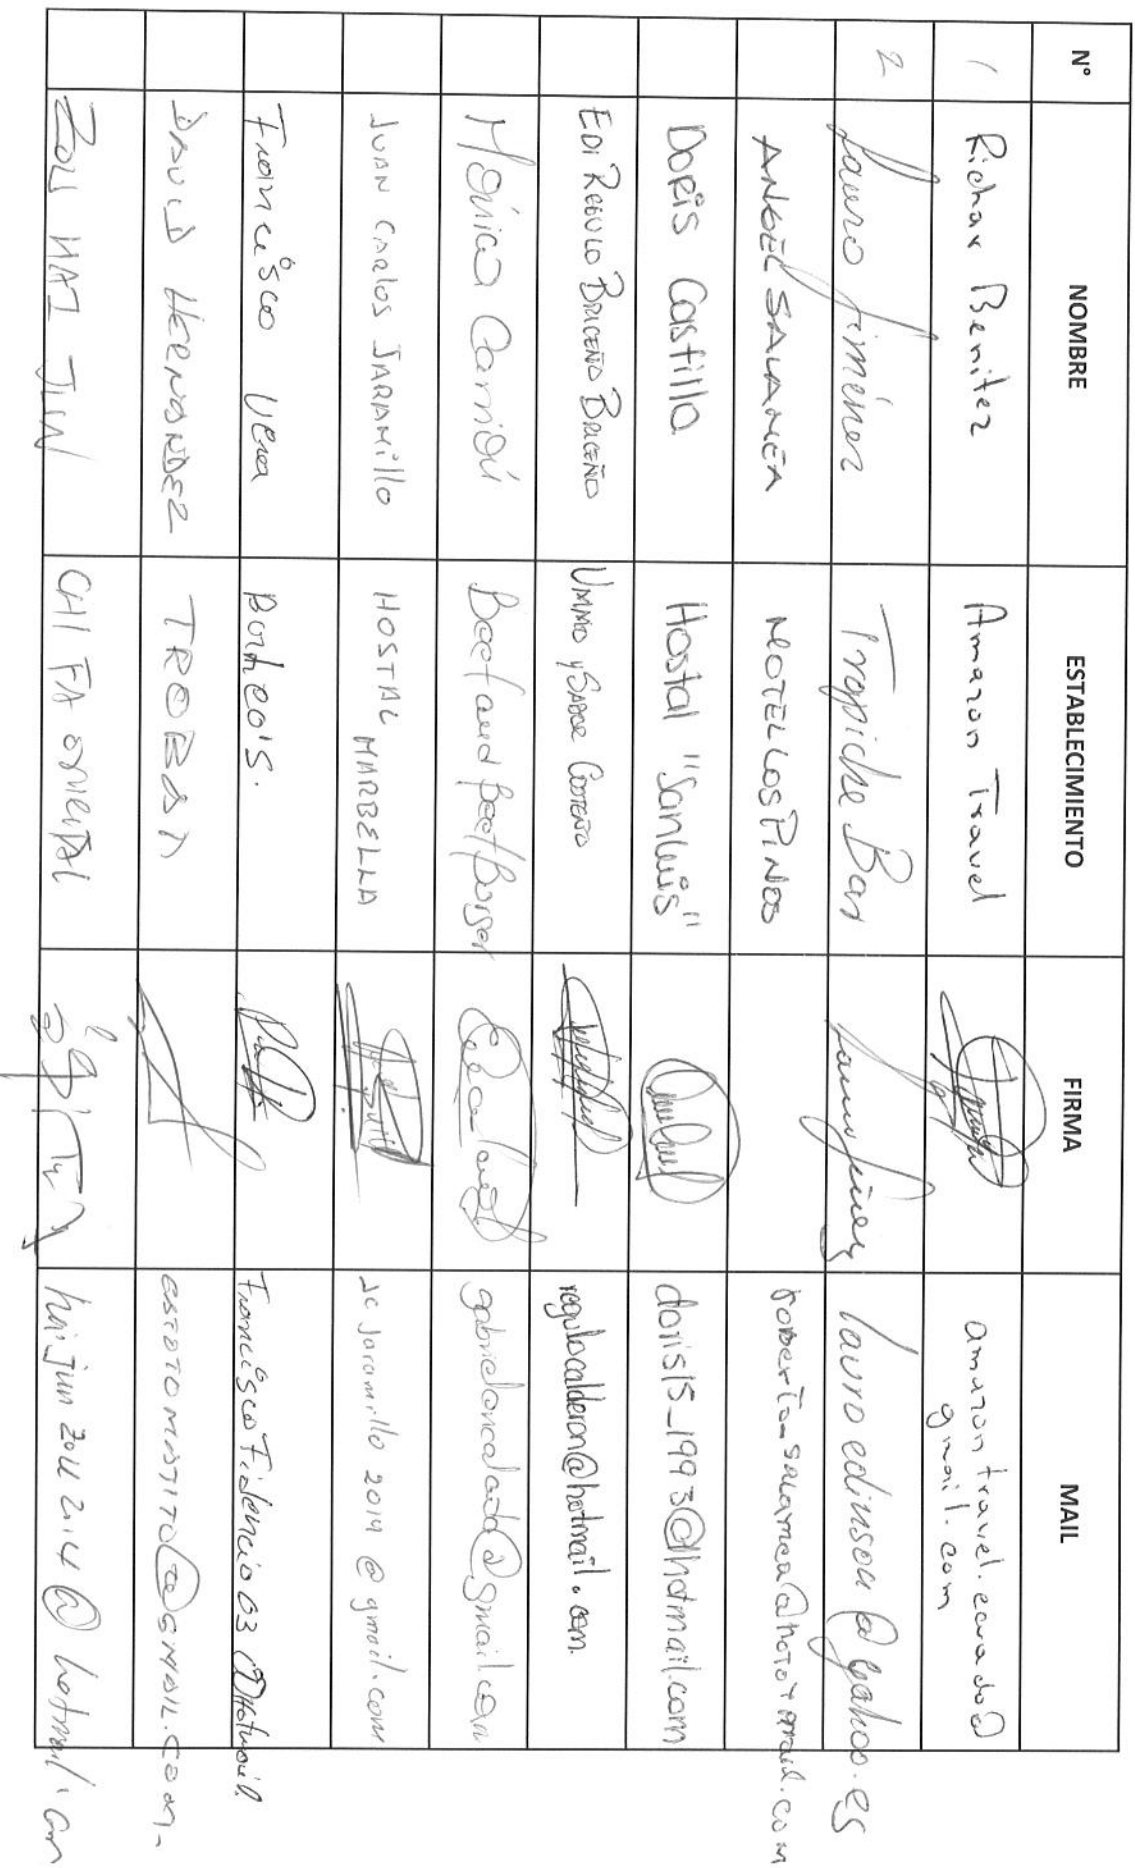 N° NOMBRE ESTABLECIMIENTO FIRMA MAIL
1 Richar Benitez Amazon Travel amazontravel.ecuador@
gmail.com
2 Lauro Jiménez Trapiche Bar lauroedinson@yahoo.es
ANGEL SALAMEA MOTEL LOS PINOS
Doris Castillo Hostal "San Luis" doris15_1993@hotmail.com
EDI REGULO BRICEÑO BRICEÑO UMMO y SABOR COSTEÑO regulocalderon@hotmail.com.
Mónica Carrión Beef and Beef Burger @gmail.com
JUAN CARLOS JARAMILLO HOSTAL MARBELLA jcjaramillo2019@gmail.com
Francisco Vera Burheo's. FranciscoFidencio03@Hotmail.
DAVID HERNANDEZ TROBAR @GMAIL.COM.
ZOU HAI JUN CHIFA ORIENTAL haijunzou2014@hotmail.com